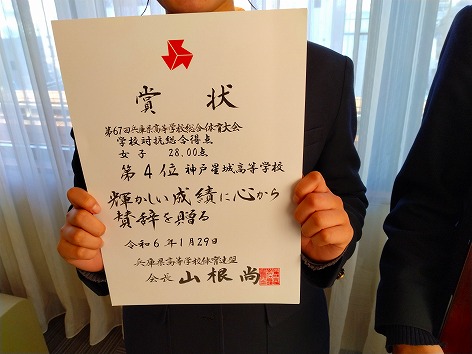 賞状
第67回兵庫県高等学校総合体育大会
学校対抗総合得点
女子 28.00点
第4位 神戸星城高等学校
輝かしい成績に心から
賛辞を贈る
令和6年1月29日
兵庫県高等学校体育連盟
会長 山根尚